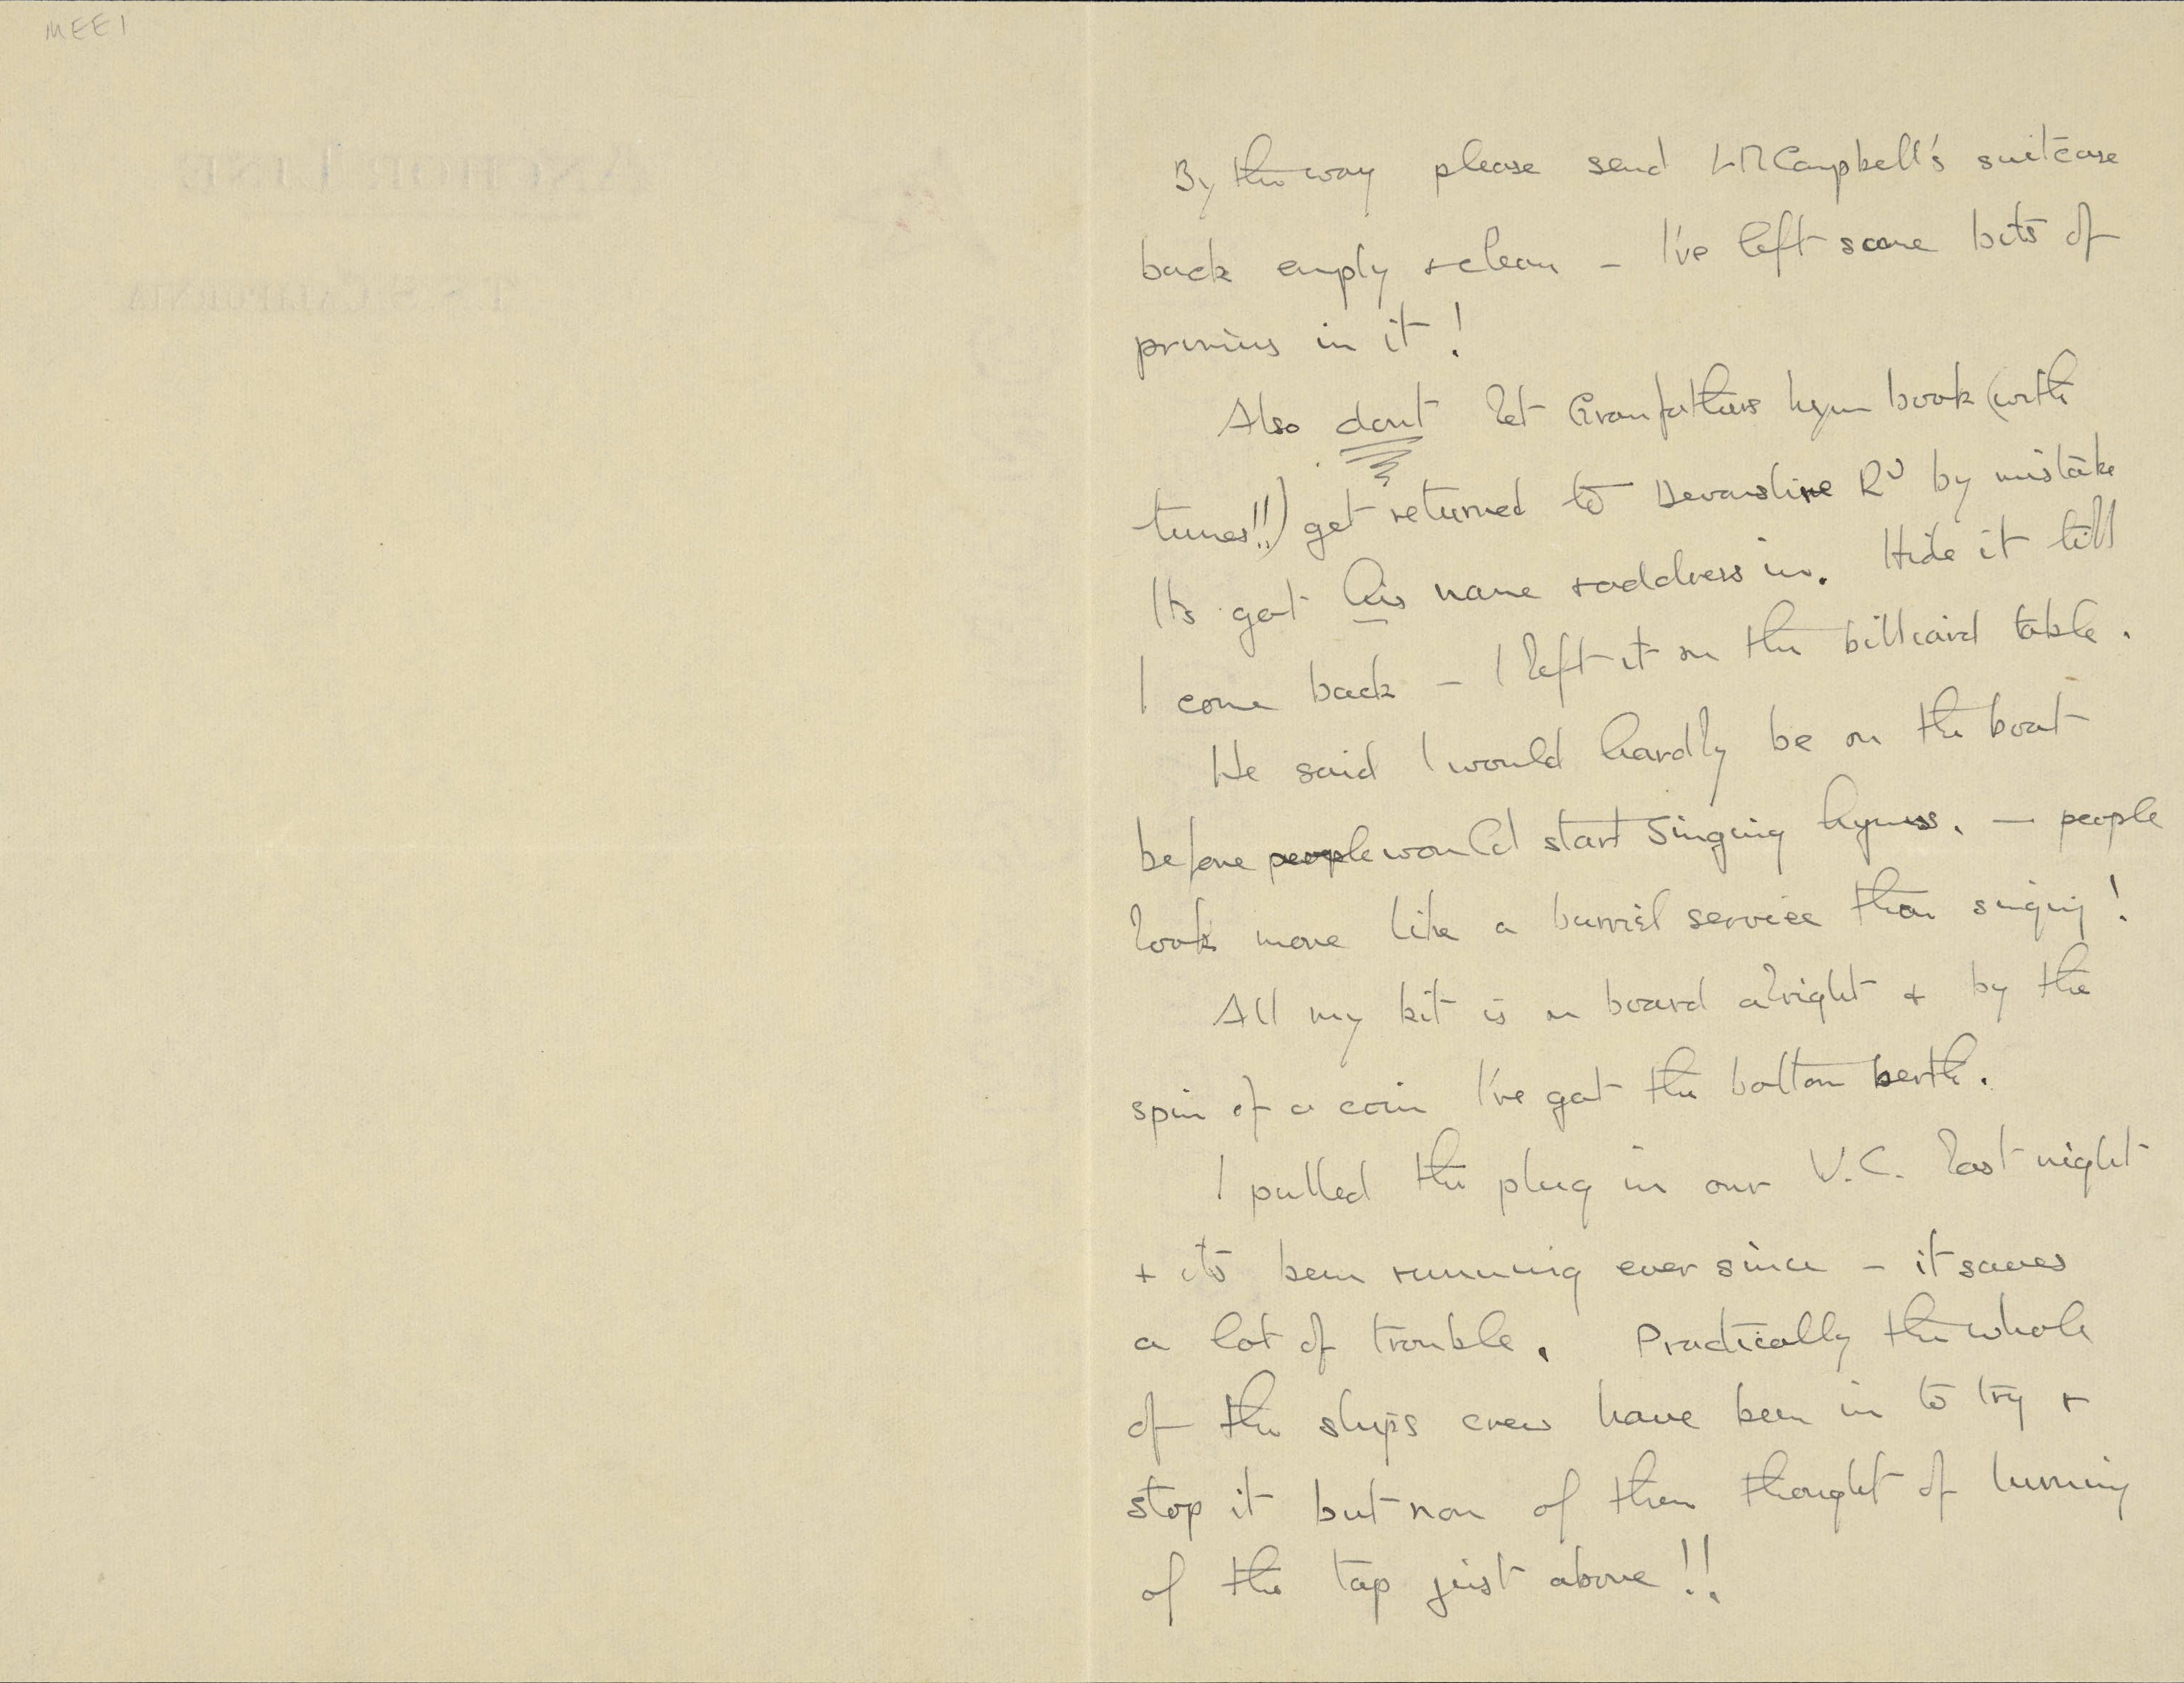 MEE1
ANCHOR LINE
T.S.S. CALIFORNIA
By the way please send Campbell's suitcase
back empty + clean – I've left some bits of
primus in it!
Also dont let Granfathers hym book (with
tunes!!) get returned to Devonshire Rd by mistake
Its got his name + address in. Hide it till
I come back – I left it on the billiard table.
He said I would hardly be on the boat
before people would start singing hymns. – people
look more like a burriel service than singing!
All my kit is on board alright + by the
spin of a coin I've got the bottom berth.
I pulled the plug in our W.C. last night
+ its been running ever since – it saves
a lot of trouble. Practically the whole
of the ships crew have been in to try +
stop it but non of them thought of turning
of the tap just above!!